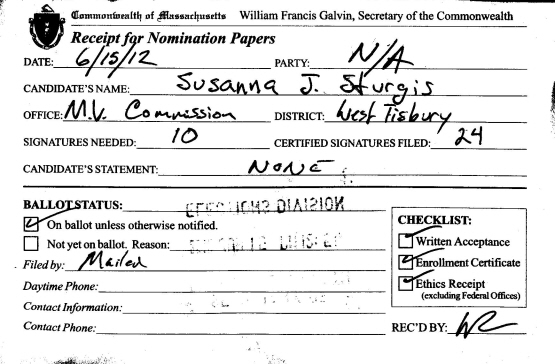 Commonwealth of Massachusetts William Francis Galvin, Secretary of the Commonwealth
Receipt for Nomination Papers
DATE: 6/15/12 PARTY: N/A
CANDIDATE'S NAME: Susanna J. Sturgis
OFFICE: M.V. Commission DISTRICT: West Tisbury
SIGNATURES NEEDED: 10 CERTIFIED SIGNATURES FILED: 24
CANDIDATE'S STATEMENT: NONE
BALLOT STATUS: ELECTIONS DIVISION
On ballot unless otherwise notified.
Not yet on ballot. Reason:
Filed by: Mailed
Daytime Phone:
Contact Information:
Contact Phone:
CHECKLIST:
Written Acceptance
Enrollment Certificate
Ethics Receipt
(excluding Federal Offices)
REC'D BY: